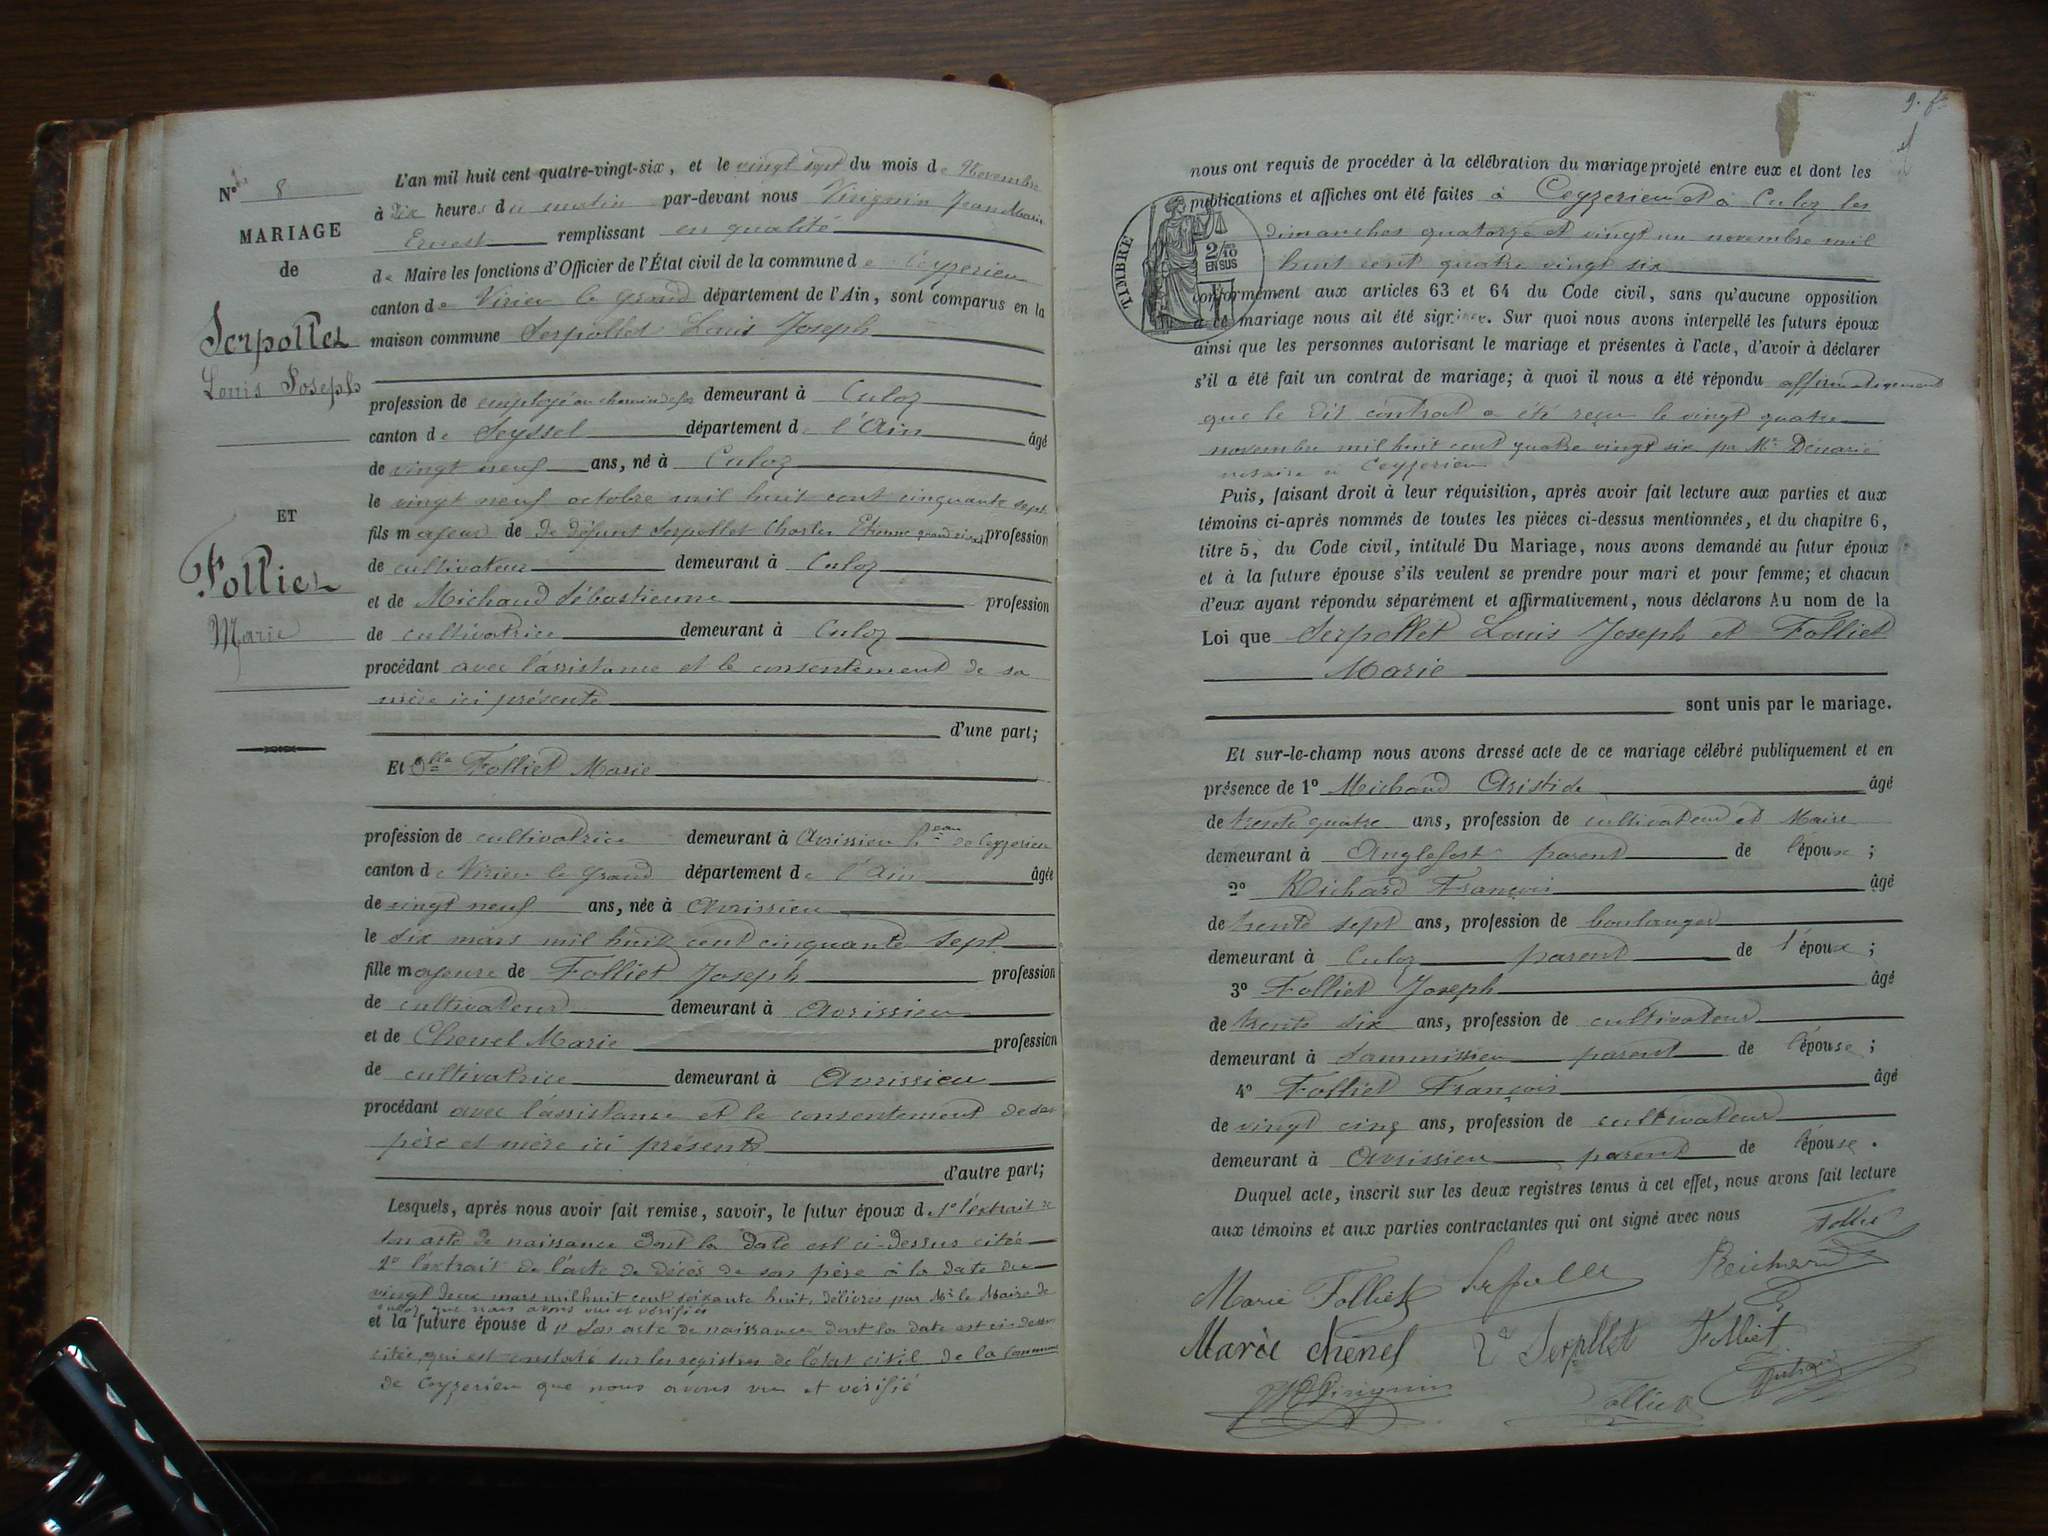 N° 8
MARIAGE
de
Serpollet
Louis Joseph
ET
Folliet
Marie
L'an mil huit cent quatre-vingt-six, et le vingt sept du mois de Novembre
à Dix heures du matin par-devant nous Virignin Jean Marie
Ernest remplissant en qualité
de Maire les fonctions d'Officier de l'État civil de la commune de Ceyzerieu
canton de Virieu le grand département de l'Ain, sont comparus en la
maison commune Serpollet Louis Joseph
profession de employé au chemin de fer demeurant à Culoz
canton de Seyssel département de l'Ain âgé
de vingt neuf ans, né à Culoz
le vingt neuf octobre mil huit cent cinquante sept
fils majeur de De défunt Serpollet Charles Etienne quand vivait profession
de cultivateur demeurant à Culoz
et de Michaud Sébastienne profession
de cultivatrice demeurant à Culoz
procédant avec l'assistance et le consentement de sa
mère ici présente
d'une part;
Et Dlle Folliet Marie
profession de cultivatrice demeurant à Avrissieu heau de Ceyzerieu
canton de Virieu le grand département de l'Ain âgée
de vingt neuf ans, née à Avrissieu
le six mars mil huit cent cinquante sept
fille majeure de Folliet Joseph profession
de cultivateur demeurant à Avrissieu
et de Chenel Marie profession
de cultivatrice demeurant à Avrissieu
procédant avec l'assistance et le consentement de ses
père et mère ici présents
d'autre part;
Lesquels, après nous avoir fait remise, savoir, le futur époux d 1° l'extrait de
son acte de naissance dont la date est ci-dessus citée
2° l'extrait de l'acte de décès de son père à la date du
vingt deux mars mil huit cent soixante huit, délivrés par Mr le Maire de
Culoz que nous avons vus et vérifiés
et la future épouse d 1° son acte de naissance dont la date est ci-dessus
citée, qui est constaté sur les registres de l'état civil de la commune
de Ceyzerieu que nous avons vu et vérifié
9. f
nous ont requis de procéder à la célébration du mariage projeté entre eux et dont les
publications et affiches ont été faites à Ceyzerieu et à Culoz les
dimanches quatorze et vingt un novembre mil
huit cent quatre vingt six
TIMBRE
2/10
EN SUS
conformément aux articles 63 et 64 du Code civil, sans qu'aucune opposition
à ce mariage nous ait été signifiée. Sur quoi nous avons interpellé les futurs époux
ainsi que les personnes autorisant le mariage et présentes à l'acte, d'avoir à déclarer
s'il a été fait un contrat de mariage; à quoi il nous a été répondu affirmativement
que le dit contrat a été reçu le vingt quatre
novembre mil huit cent quatre vingt six par Me Dénarié
notaire à Ceyzerieu
Puis, faisant droit à leur réquisition, après avoir fait lecture aux parties et aux
témoins ci-après nommés de toutes les pièces ci-dessus mentionnées, et du chapitre 6,
titre 5, du Code civil, intitulé Du Mariage, nous avons demandé au futur époux
et à la future épouse s'ils veulent se prendre pour mari et pour femme; et chacun
d'eux ayant répondu séparément et affirmativement, nous déclarons Au nom de la
Loi que Serpollet Louis Joseph et Folliet
Marie
sont unis par le mariage.
Et sur-le-champ nous avons dressé acte de ce mariage célébré publiquement et en
présence de 1° Michaud Aristide âgé
de trente quatre ans, profession de cultivateur et Maire
demeurant à Anglefort parent de l'époux;
2° Richard François âgé
de trente sept ans, profession de boulanger
demeurant à Culoz parent de l'époux;
3° Folliet Joseph âgé
de trente six ans, profession de cultivateur
demeurant à Sammissieu parent de l'épouse;
4° Folliet François âgé
de vingt cinq ans, profession de cultivateur
demeurant à Avrissieu parent de l'épouse.
Duquel acte, inscrit sur les deux registres tenus à cet effet, nous avons fait lecture
aux témoins et aux parties contractantes qui ont signé avec nous
Folliet
Marie Folliet Serpollet Richard
Marie chenel Ve Serpllet Folliet
Virignin Folliet